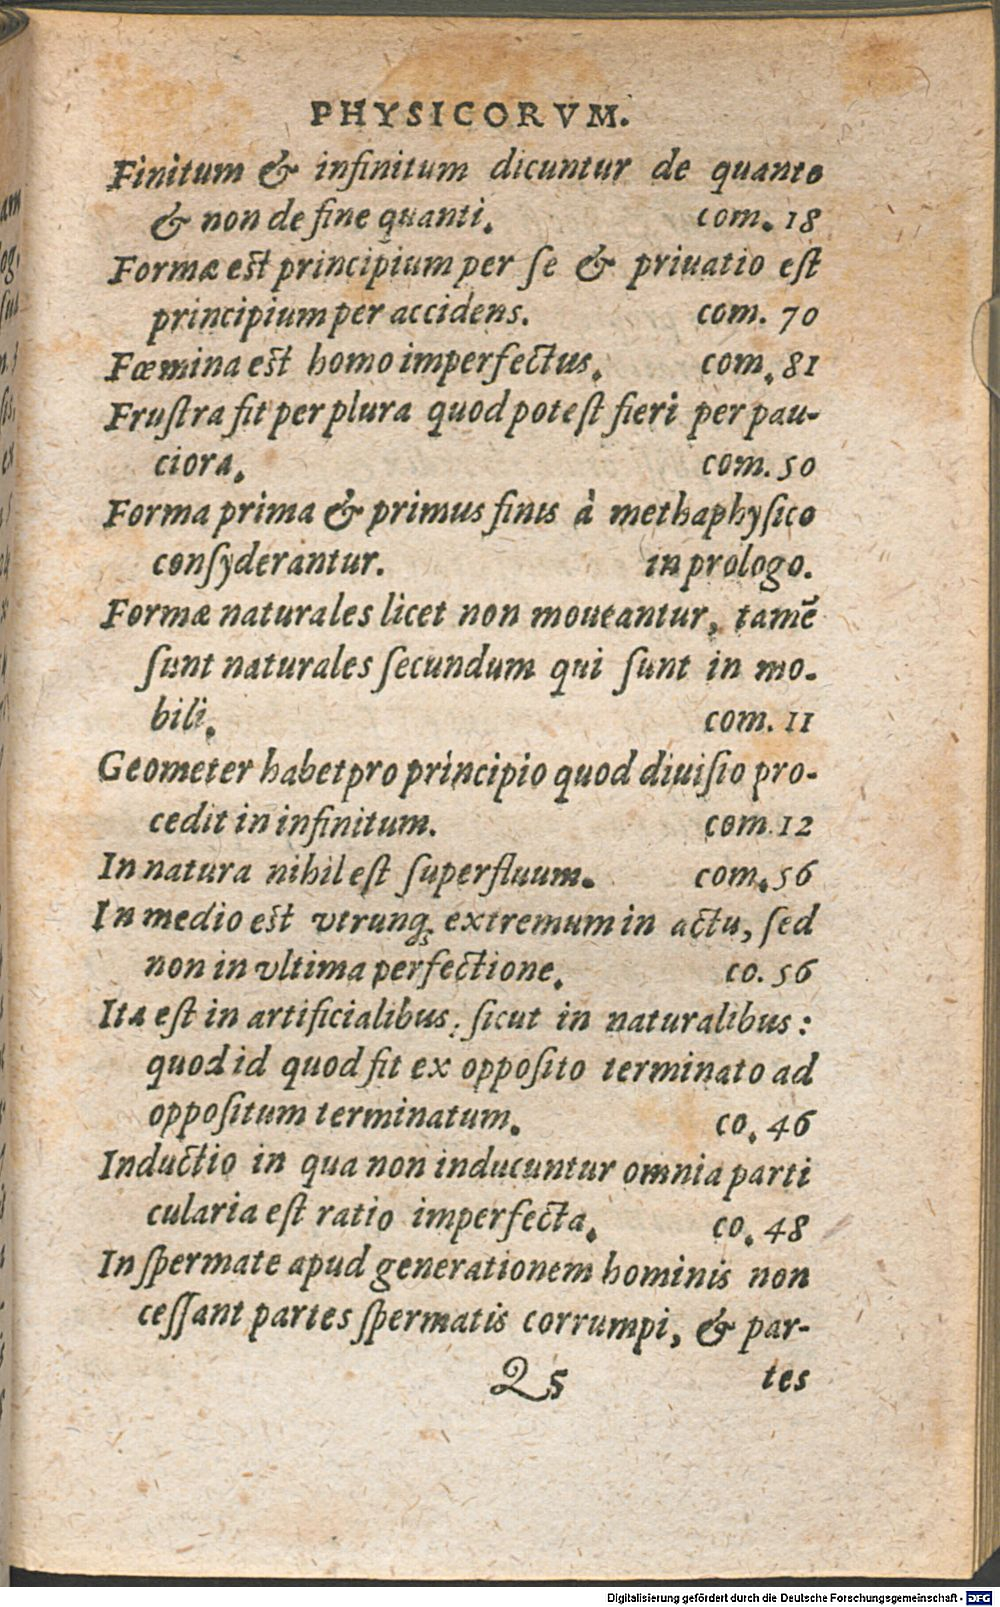 PHYSICORVM.
Finitum & infinitum dicuntur de quanto
& non de fine quanti. com. 18
Formæ est principium per ſe & priuatio eſt
principium per accidens. com. 70
Fœmina est homo imperfectus. com. 81
Fruſtra fit per plura quod poteſt fieri per pau-
ciora. com. 50
Forma prima & primus finis à methaphyſico
conſyderantur. in prologo.
Formæ naturales licet non moueantur, tamē
ſunt naturales ſecundum qui ſunt in mo-
bili. com. 11
Geometer habet pro principio quod diuiſio pro-
cedit in infinitum. com. 12
In natura nihil eſt ſuperfluum. com. 56
In medio est vtrunq; extremum in actu, ſed
non in vltima perfectione. co. 56
Ita eſt in artificialibus, ſicut in naturalibus:
quod id quod fit ex oppoſito terminato ad
oppoſitum terminatum. co. 46
Inductio in qua non inducuntur omnia parti
cularia eſt ratio imperfecta. co. 48
In ſpermate apud generationem hominis non
ceſſant partes ſpermatis corrumpi, & par-
Q5 tes
Digitalisierung gefördert durch die Deutsche Forschungsgemeinschaft - DFG